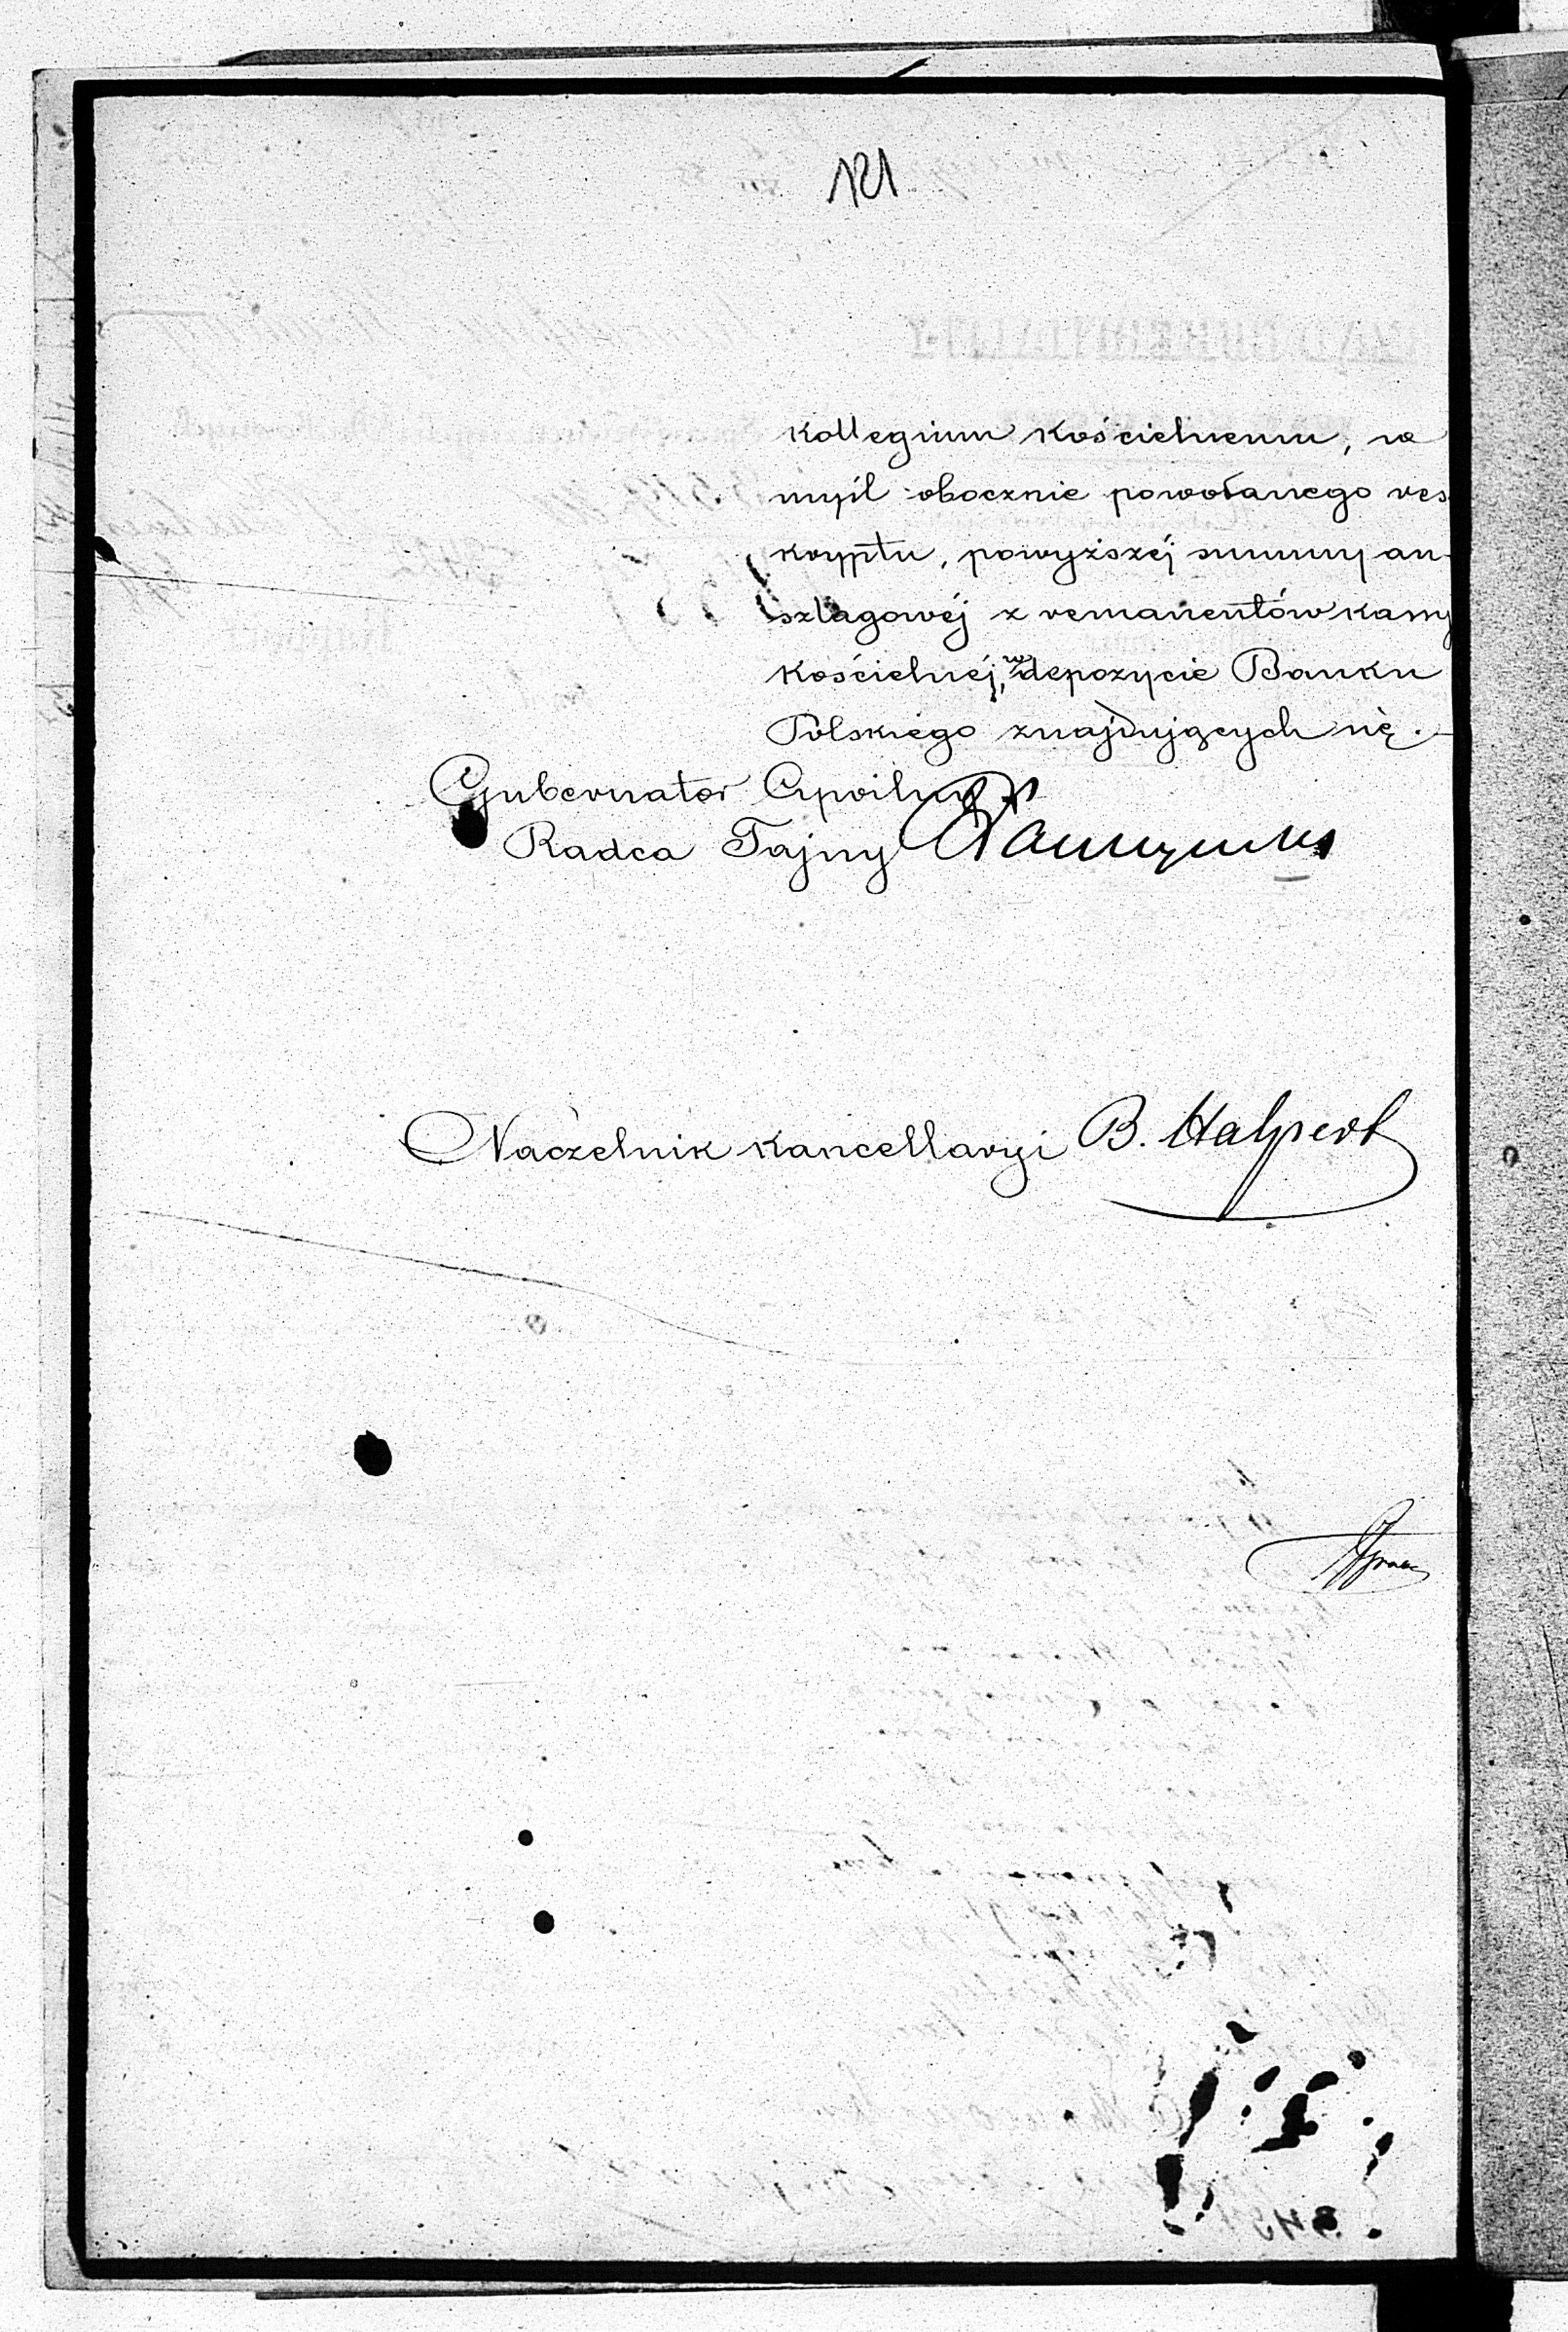 121
kollegium kościelnemu, w
myśl obocznie powołanego res-
kryptu, powyższéj summy an-
szlagowéj z remanentów kassy
kościelnéj, w depozycie Banku
Polskiego znajdujących się.
Gubernator Cywilny
Radca Tajny
Naczelnik Kancellaryi B. Halpert